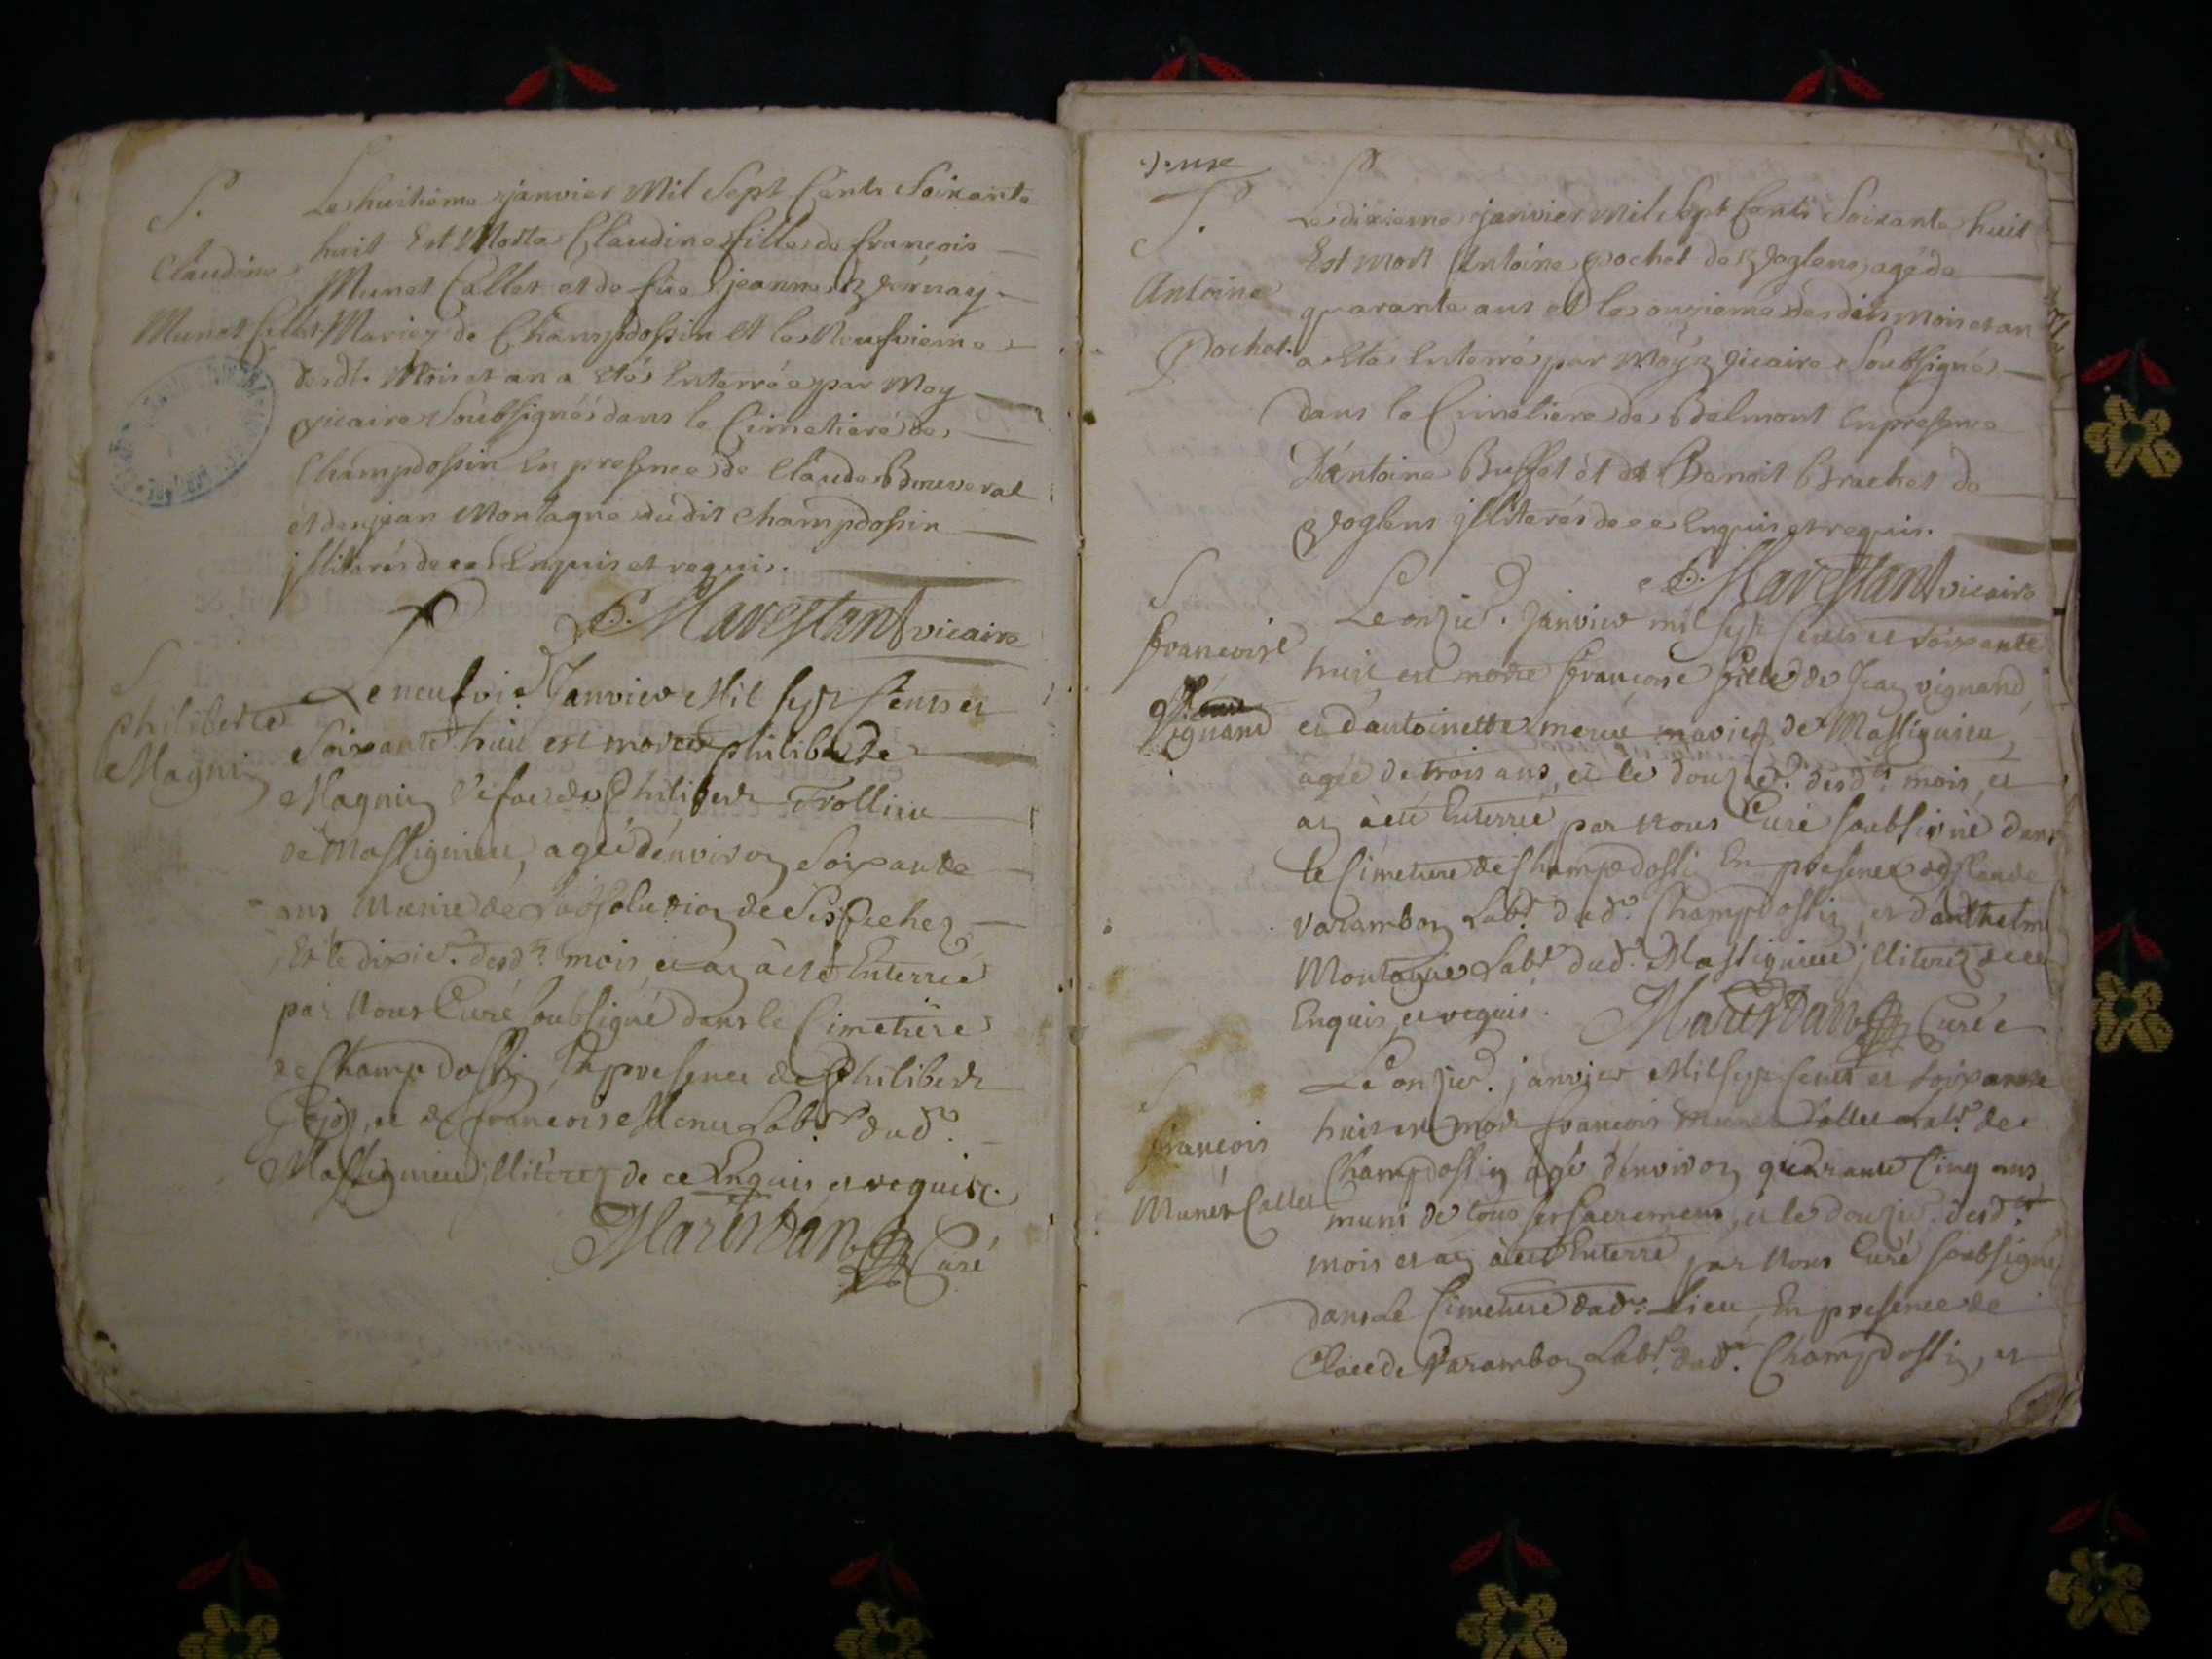 S.
Claudine
Munet Callet
Le huitieme janvier Mil Sept Cents Soixante
huit Est Morte Claudine fille de françois
Munet Callet et de füe jeanne Vernay
Mariez de Champdossin et le Neufvieme
desdt. Mois et an a été Enterrée par Moy
vicaire Soubsigné dans le Cimetiere de
Champdossin En presence de Claude
et de jean Montagne dudit Champdossin
jlliterés de ce Enquis et requis.
Marestant vicaire
S
philiberte
Magnin
Le neufvie. Janvier Mil sept Cents et
Soixante huit est morte philiberte
Magnin vefve de Philibert Trollieu
de Massignieu, agée d'environ Soixante
ans munie de L'absolution de Ses pechez
Et le dixie. desdts mois et an à été Enterrée
par Nous Curé soubsigné dans le Cimetiere
de Champdossin En presence de Philibert
et de françois Menu Labr. dud.
Massignieu jlliterez de ce Enquis et requis.
Marestan Curé
S.
Antoine
Pochet.
Le dixieme janvier Mil Sept Cents Soixante huit
Est mort Antoine pochet de Voglens, agé de
quarante ans et le onzieme desdits Mois et an
a été Enterré par Moy vicaire Soubsigné
dans le Cimetiere de Belmont En presence
D'antoine Buffet et de Benoit Brachet de
Voglens jlliterés de ce Enquis et requis.
Marestant vicaire
S
françoise
Vignand
Le onzie. Janvier mil sept Cents et soixante
huit est morte françoise fille de Jean vignand
et d'antoinette menu mariez de Massignieu,
agée de trois ans, et le douzie. desdts mois, et
an à été Enterrée par Nous Curé soubsigné dans
le Cimetiere de Champdossin En presence de Claude
Varambon Labr. dud. Champdossin, et d'anthelme
Montagne Labr dud. Massignieu jlliterez de ce
Enquis et requis.
Marestan Curé
S
françois
Munet Callet
Le onzie. janvier Mil sept Cents et soixante
huit est mort françois Munet Callet Labr. de
Champdossin agé d'environ quarante Cinq ans
muni de tous ses sacremens, et le douzie. desdts
mois et an à été Enterré par Nous Curé soubsigné
dans Le Cimetiere dud. Lieu, En presence de
Claude Varambon Labr. dud. Champdossin, et